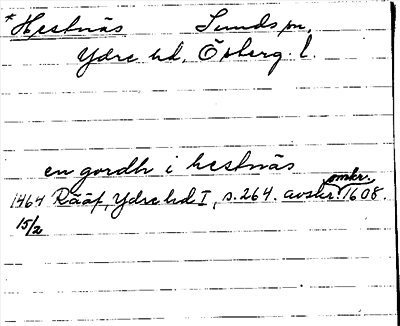 *Hestnäs Sunds sn.
Ydre hd. Östberg. l.
en gordh i hestnäs
omkr.
1464 Rääf, Ydre hd I, s. 264. avskr. 1608.
15/2